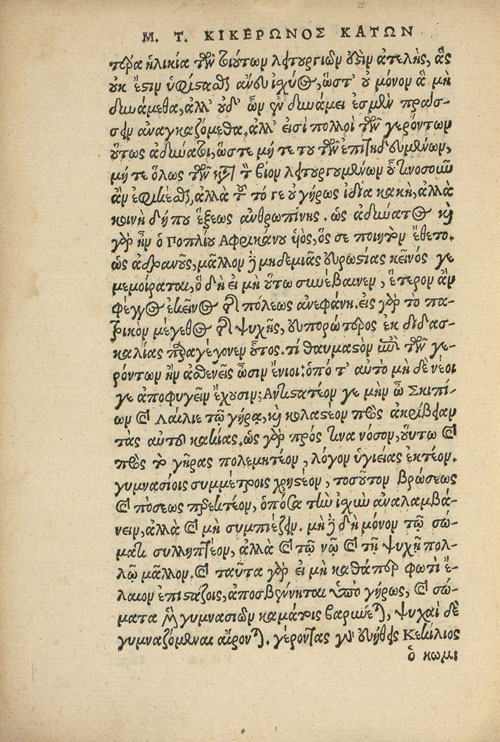 Μ. Τ. ΚΙΚΕΡΩΝΟΣ ΚΑΤΩΝ
τέρα ἡλικία τῶν τοιούτων λειτουργιῶν ἀτελὴς, ἃς
οὐκ ἔστιν ὑφίστασθαι ἄνευ ἰσχύος, ὥστ' οὐ μόνον ἃ μὴ
δυνάμεθα, ἀλλ' οὐδ' ὧν ἐν δυνάμει ἐσμὲν πράσ-
σειν ἀναγκαζόμεθα. ἀλλ' εἰσὶ πολλοὶ τῶν γερόντων
οὕτως ἀδύνατοι, ὥστε μή τε του τῶν ἐπιτηδευμένων,
μή τε ὅλως τῶν κατὰ τὸν βίον λειτουργουμένων οὑτινοσοῦν
ἂν ἐφικέσθαι, ἀλλὰ τοῦτό γε οὐ γήρως ἰδία κακὴ, ἀλλὰ
κοινὴ δήπου ἕξεως ἀνθρωπίνης. ὡς ἀδύνατος καὶ
γὰρ ἦν ὁ Ποπλίου Ἀφρικάνου ὑὸς, ὅς σε ποιητὸν ἔθετο.
ὡς ἀδρανὴς, μᾶλλον ἢ μηδεμιᾶς εὐρωστίας κεῖνός γε
μεμοίραται, ὃ δὴ εἰ μὴ οὕτω συνέβαινεν, ἕτερον ἂν
φέγγος ἐκεῖνος τῆς πόλεως ἀνεφάνη. εἰς γὰρ τὸ πα-
τρικὸν μέγεθος τῆς ψυχῆς, εὐπορώτερος ἐκ διδασ-
καλίας παραγέγονεν οὗτος. τί θαυμαστὸν ἐπὶ τῶν γε-
ρόντων ἢν ἀσθενεῖς ὦσιν ἔνιοι; ὁπότ' αὐτὸ μηδὲ νέοι
γε ἀποφυγεῖν ἔχουσιν; Ἀντιστατέον γε μὴν ὦ Σκιπί-
ων καὶ Λαίλιε τῷ γήρᾳ, καὶ κολαστέον πως ἀκριβῶς
τὰς αὐτοῦ κακίας. ὡς γὰρ πρός τινα νόσον, οὕτω καὶ
πρὸς τὸ γῆρας πολεμητέον, λόγον ὑγιείας ἑκτέον.
γυμνασίοις συμμέτροις χρηστέον, τοσοῦτον βρώσεως
καὶ πόσεως προσεκτέον, ὁπόσα τὴν ἰσχὺν ἀναλαμβά-
νειν, ἀλλὰ καὶ μὴ συμπιέζειν. μὴ δὴ μόνον τῷ σώ-
ματι συλληπτέον, ἀλλὰ καὶ τῷ νῷ καὶ τῇ ψυχῇ πολ-
λῷ μᾶλλον. καὶ ταῦτα γὰρ εἰ μὴ καθάπερ φωτὶ ἔ-
λαιον ἐπιστάζοις, ἀποσβέννυται ὑπὸ γήρως, καὶ σώ-
ματα μὲν γυμνασιῶν καμάτοις βαρύνεται, ψυχαὶ δὲ
γυμναζόμεναι αἴρονται. γέροντας γε εὐήθεις Κεκίλιος
ὁ κωμι